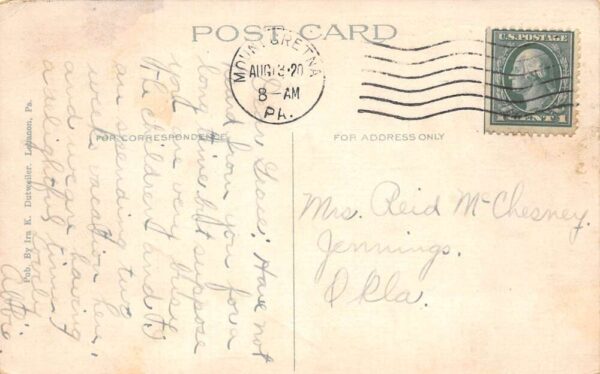 POST CARD
MOUNT GRETNA
AUG 13 20
8-AM
PA.
U.S. POSTAGE
1 CENT 1
FOR CORRESPONDENCE
FOR ADDRESS ONLY
Pub. By Ira K. Dutweiler, Lebanon, Pa.
Dear Grace: Have not
heard from you for a
long time but suppose
you are very busy.
The children and I
are spending two
weeks vacation here
and we are having
a delightful time.
Abbie.
Mrs. Reid McChesney.
Jennings.
Okla.